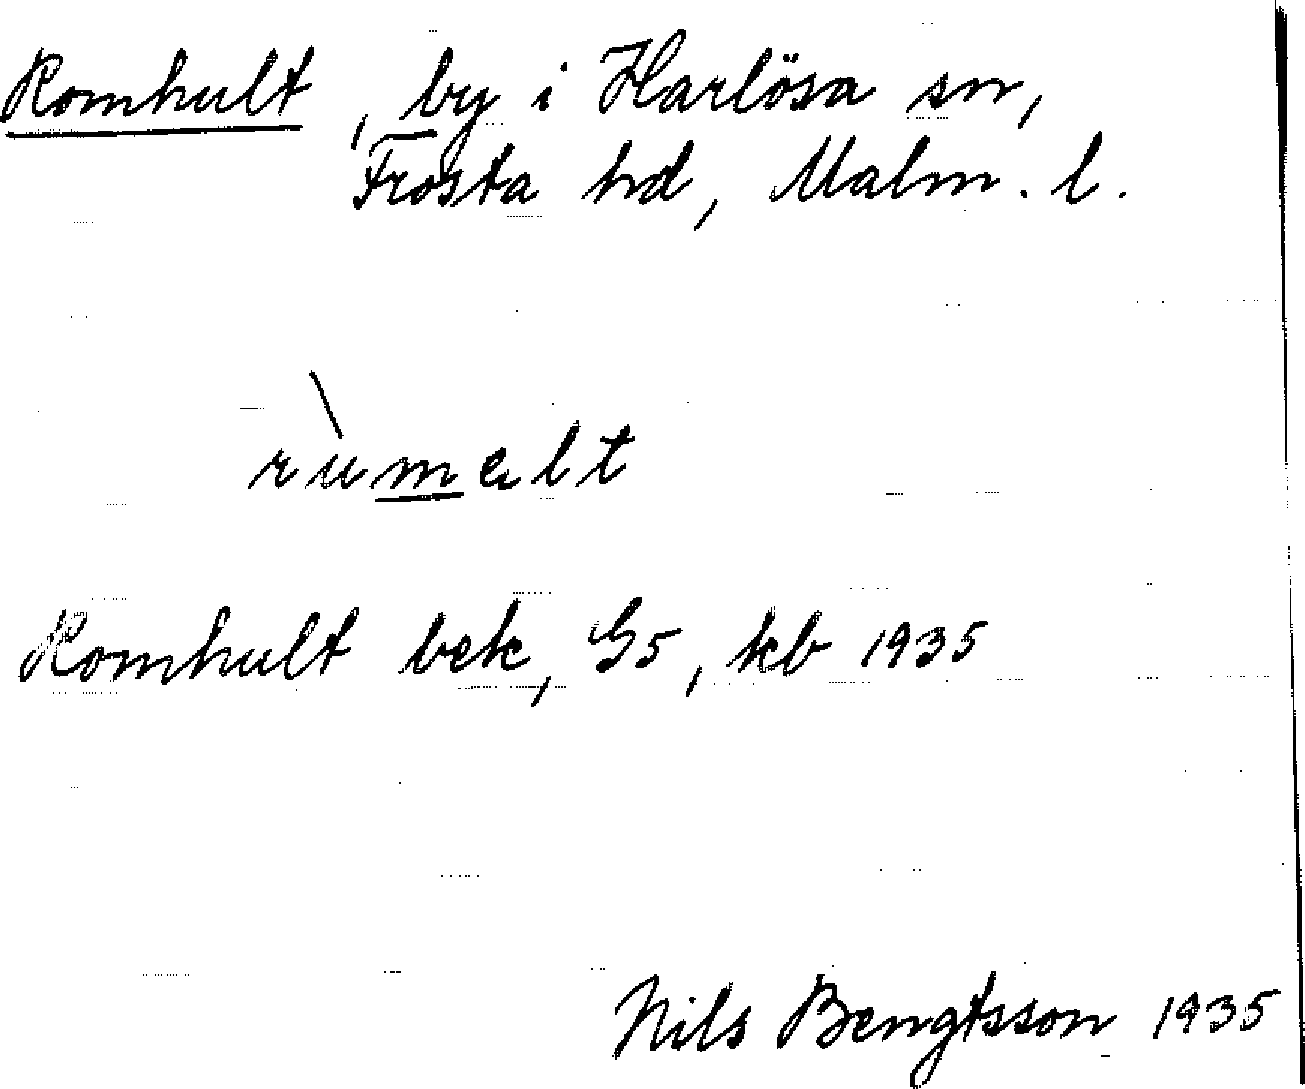 Romhult, by i Harlösa sn,
Frosta hd, Malm. l.
rùmelt
Romhult bek, G5, kb 1935
Nils Bengtsson 1935